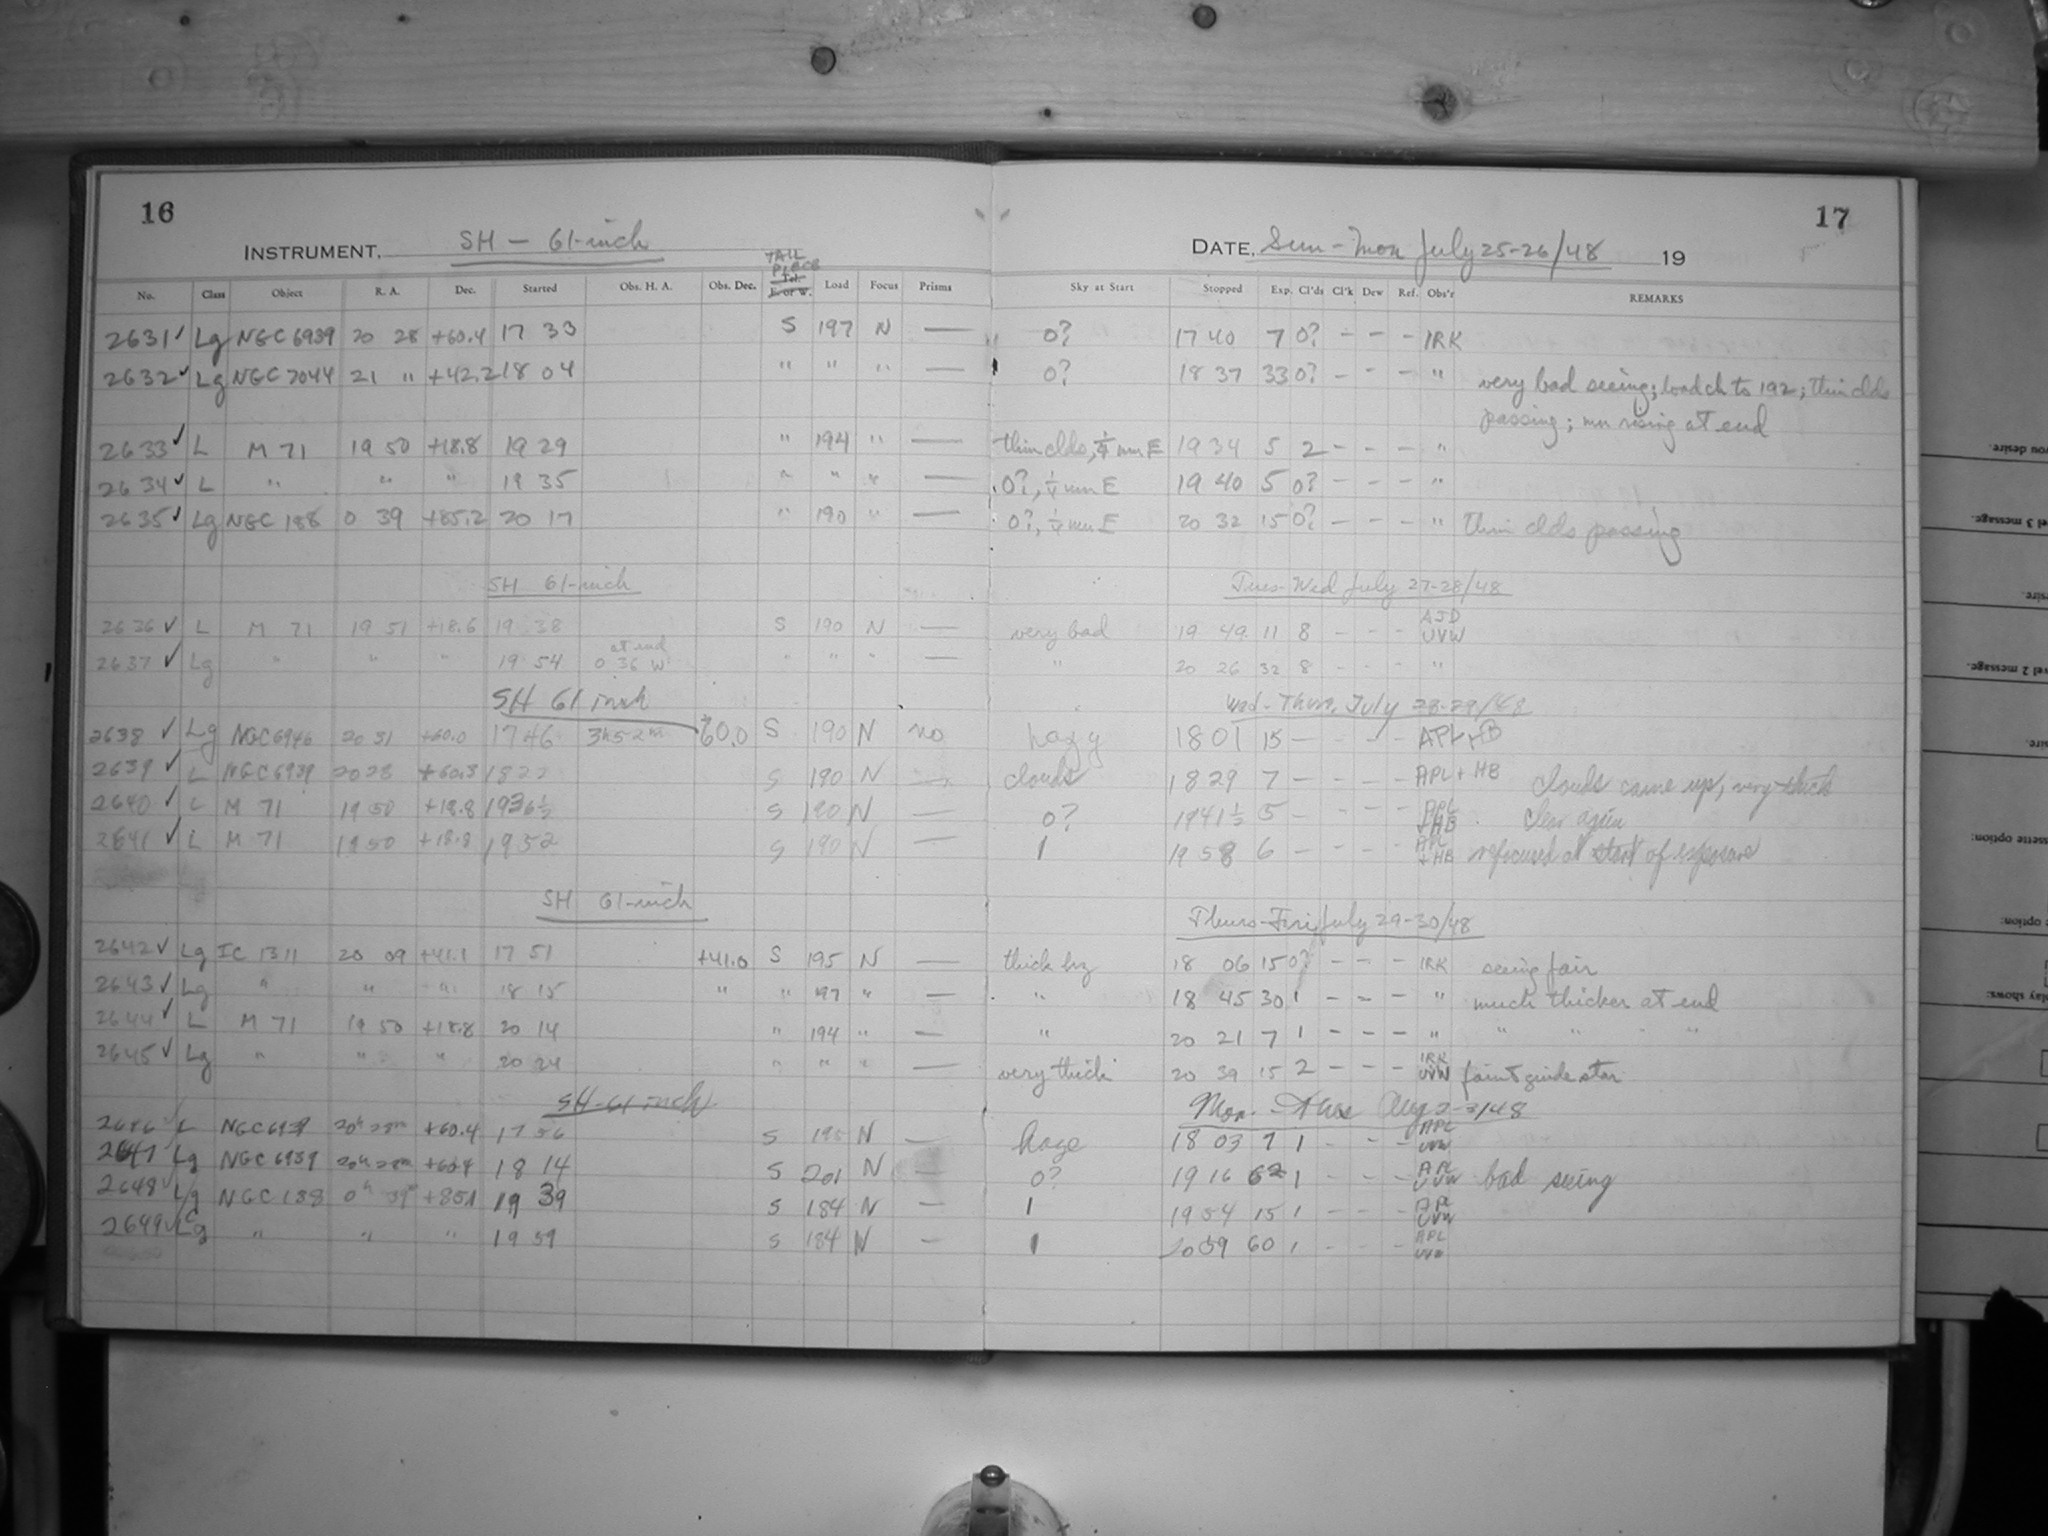 16
17
INSTRUMENT, SH - 61-inch
DATE, Sun-Mon July 25-26/48 19
TAIL PIECE
No. Class Object R. A. Dec. Started Obs. H. A. Obs. Dec. Tel. E. or W. Load Focus Prisms Sky at Start Stopped Exp. Cl'ds Cl'k Dew Ref. Obs'r REMARKS
2631 ✓ Lg NGC 6939 20 28 +60.4 17 33 S 197 N — 0? 17 40 7 0? - - - IRK
2632 ✓ Lg NGC 7044 21 " +42.2 18 04 " " " — 0? 18 37 33 0? - - - " very bad seeing; load ch to 192; thin clds
passing; mn rising at end
2633 ✓ L M 71 19 50 +18.8 19 29 " 194 " — thin clds, ¼ mn E 19 34 5 2 - - - "
2634 ✓ L " " " 19 35 " " " — 0?, ¼ mn E 19 40 5 0? - - - "
2635 ✓ Lg NGC 188 0 39 +85.2 20 17 " 190 " — 0?, ¼ mn E 20 32 15 0? - - - " thin clds passing
SH 61-inch Tues-Wed July 27-28/48
2636 ✓ L M 71 19 51 +18.6 19 38 S 190 N — very bad 19 49 11 8 - - - AJD UVW
2637 ✓ Lg " " " 19 54 at end 0 36 W " " " — " 20 26 32 8 - - - "
SH 61 inch Wed-Thurs, July 28-29/48
2638 ✓ Lg NGC 6946 20 31 +60.0 17 46 3h 52m +60.0 S 190 N no hazy 18 01 15 - - - APL+HB
2639 ✓ L NGC 6939 20 28 +60.3 18 22 S 190 N — clouds 18 29 7 - - - - APL + HB clouds came up, very thick
2640 ✓ L M 71 19 50 +18.8 19 36½ S 190 N — 0? 19 41½ 5 - - - - APL +HB clear again
2641 ✓ L M 71 19 50 +18.8 19 52 S 190 N — 1 19 58 6 - - - - APL +HB refocused at start of exposure
SH 61-inch Thurs-Fri, July 29-30/48
2642 ✓ Lg IC 1311 20 09 +41.1 17 51 +41.0 S 195 N — thick hz 18 06 15 0? - - - IRK seeing fair
2643 ✓ Lg " " " 18 15 " " 197 " — " 18 45 30 1 - - - " much thicker at end
2644 ✓ L M 71 19 50 +18.8 20 14 " 194 " — " 20 21 7 1 - - - " " " " "
2645 ✓ Lg " " " 20 24 " " " — very thick 20 39 15 2 - - - IRK UVW faint guide star
SH-61 inch Mon.-Tues Aug 2-3/48
2646 ✓ L NGC 6939 20h 28m +60.4 17 56 S 195 N — haze 18 03 7 1 - - - APL UVW
2647 Lg NGC 6939 20h 28m +60.4 18 14 S 201 N — 0? 19 16 62 1 - - - APL UVW bad seeing
2648 ✓ Lg NGC 188 0h 39m +85.1 19 39 S 184 N — 1 19 54 15 1 - - - APL UVW
2649 ✓ Lg " " " 19 59 S 184 N — 1 20 59 60 1 - - - APL UVW
you desire.
el 3 message.
sire.
vel 2 message.
sire.
ssette option:
option:
play shows: